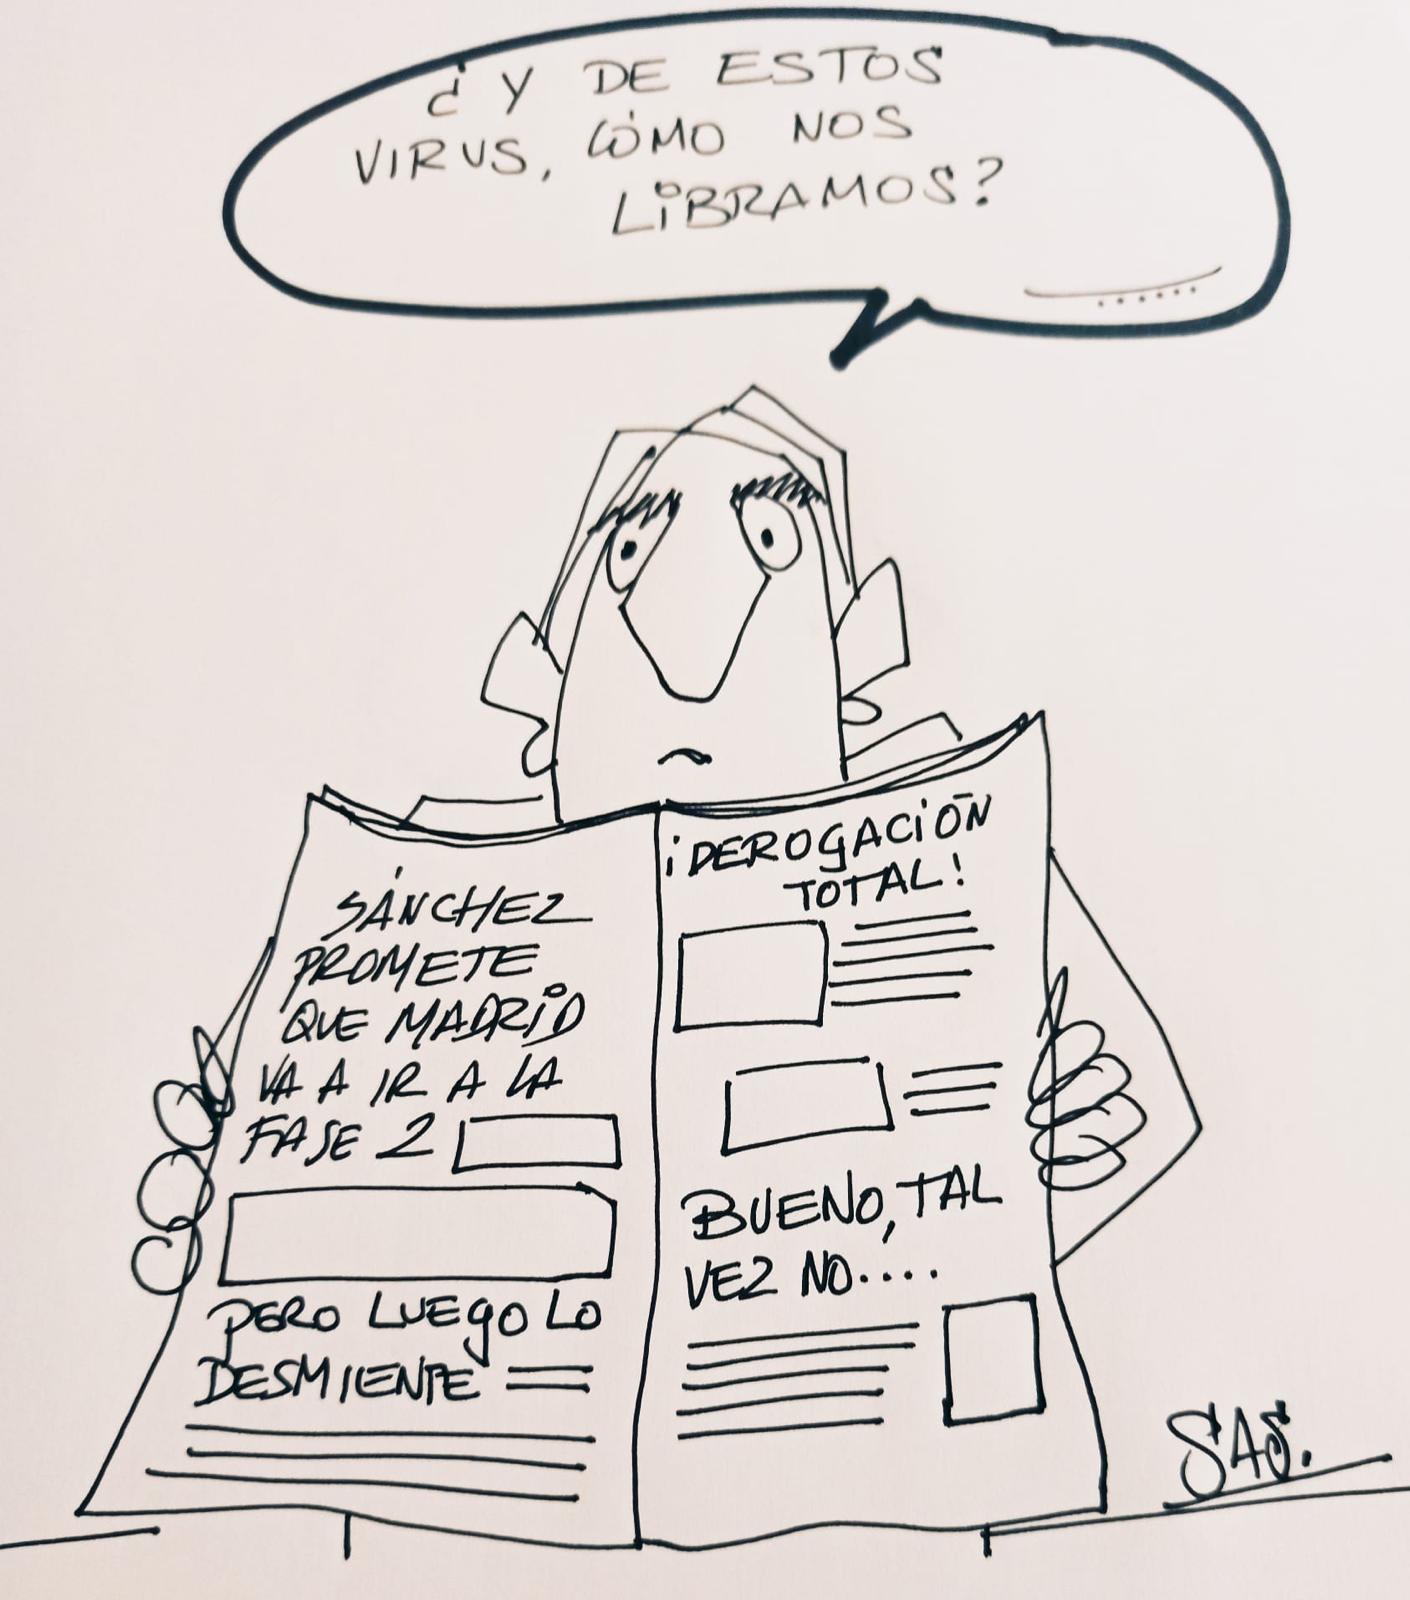 ¿Y DE ESTOS
VIRUS, CÓMO NOS
LIBRAMOS?
SÁNCHEZ
PROMETE
QUE MADRID
VA A IR A LA
FASE 2
PERO LUEGO LO
DESMIENTE
¡DEROGACIÓN
TOTAL!
BUENO, TAL
VEZ NO....
SAS.